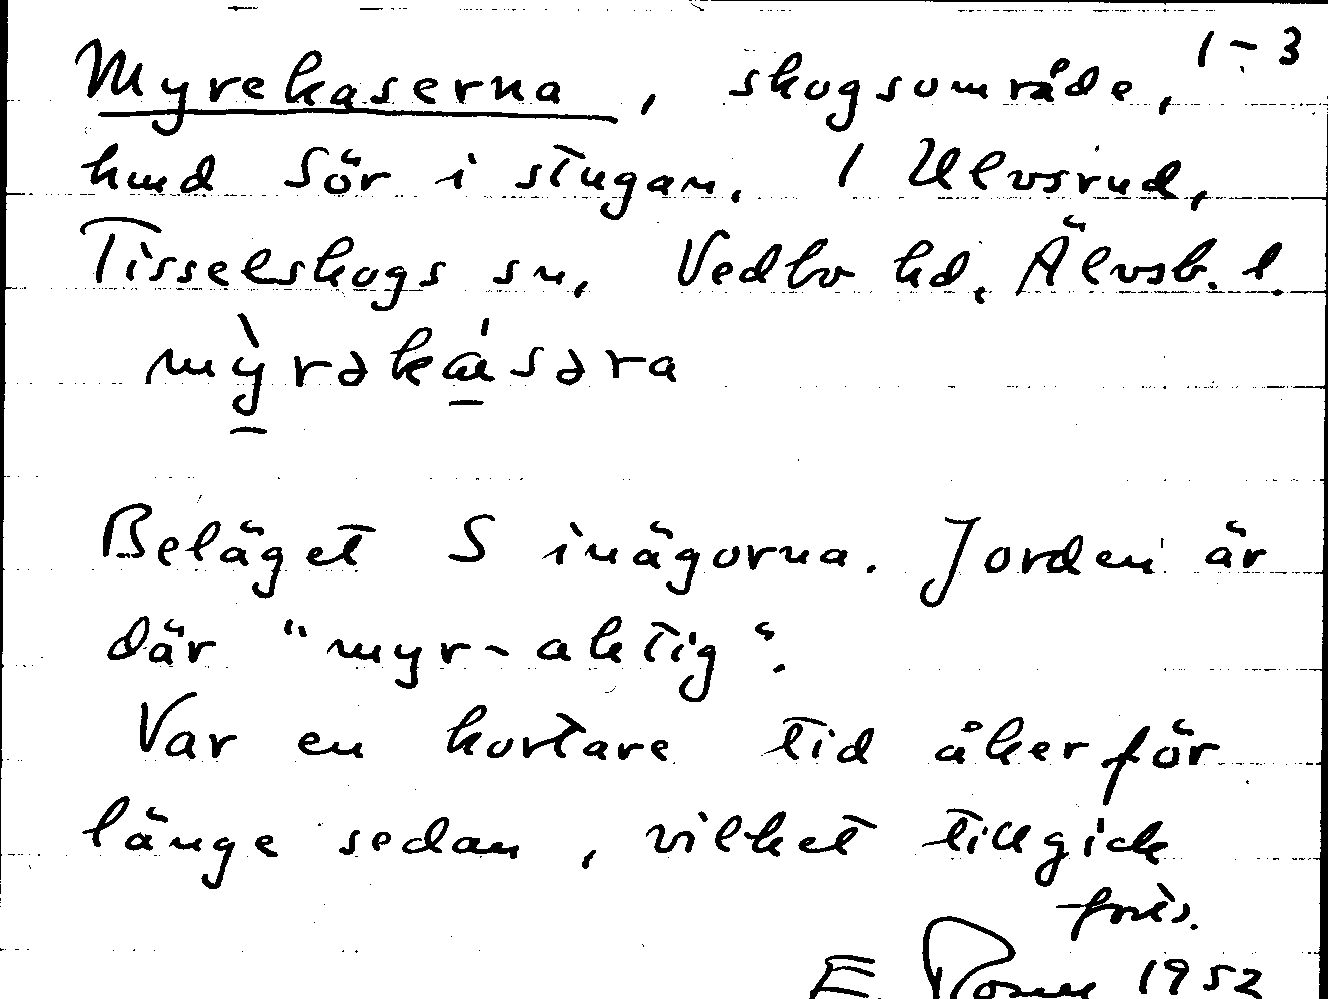 1-3
Myrekaserna, skogsområde,
hmd Sör i stugan, 1 Ulvsrud,
Tisselskogs sn, Vedbo hd, Älvsb. l.
Beläget S inägorna. Jorden är
där "myr-aktig".
Var en kortare tid åker för
länge sedan, vilket tillgick
E. 1952